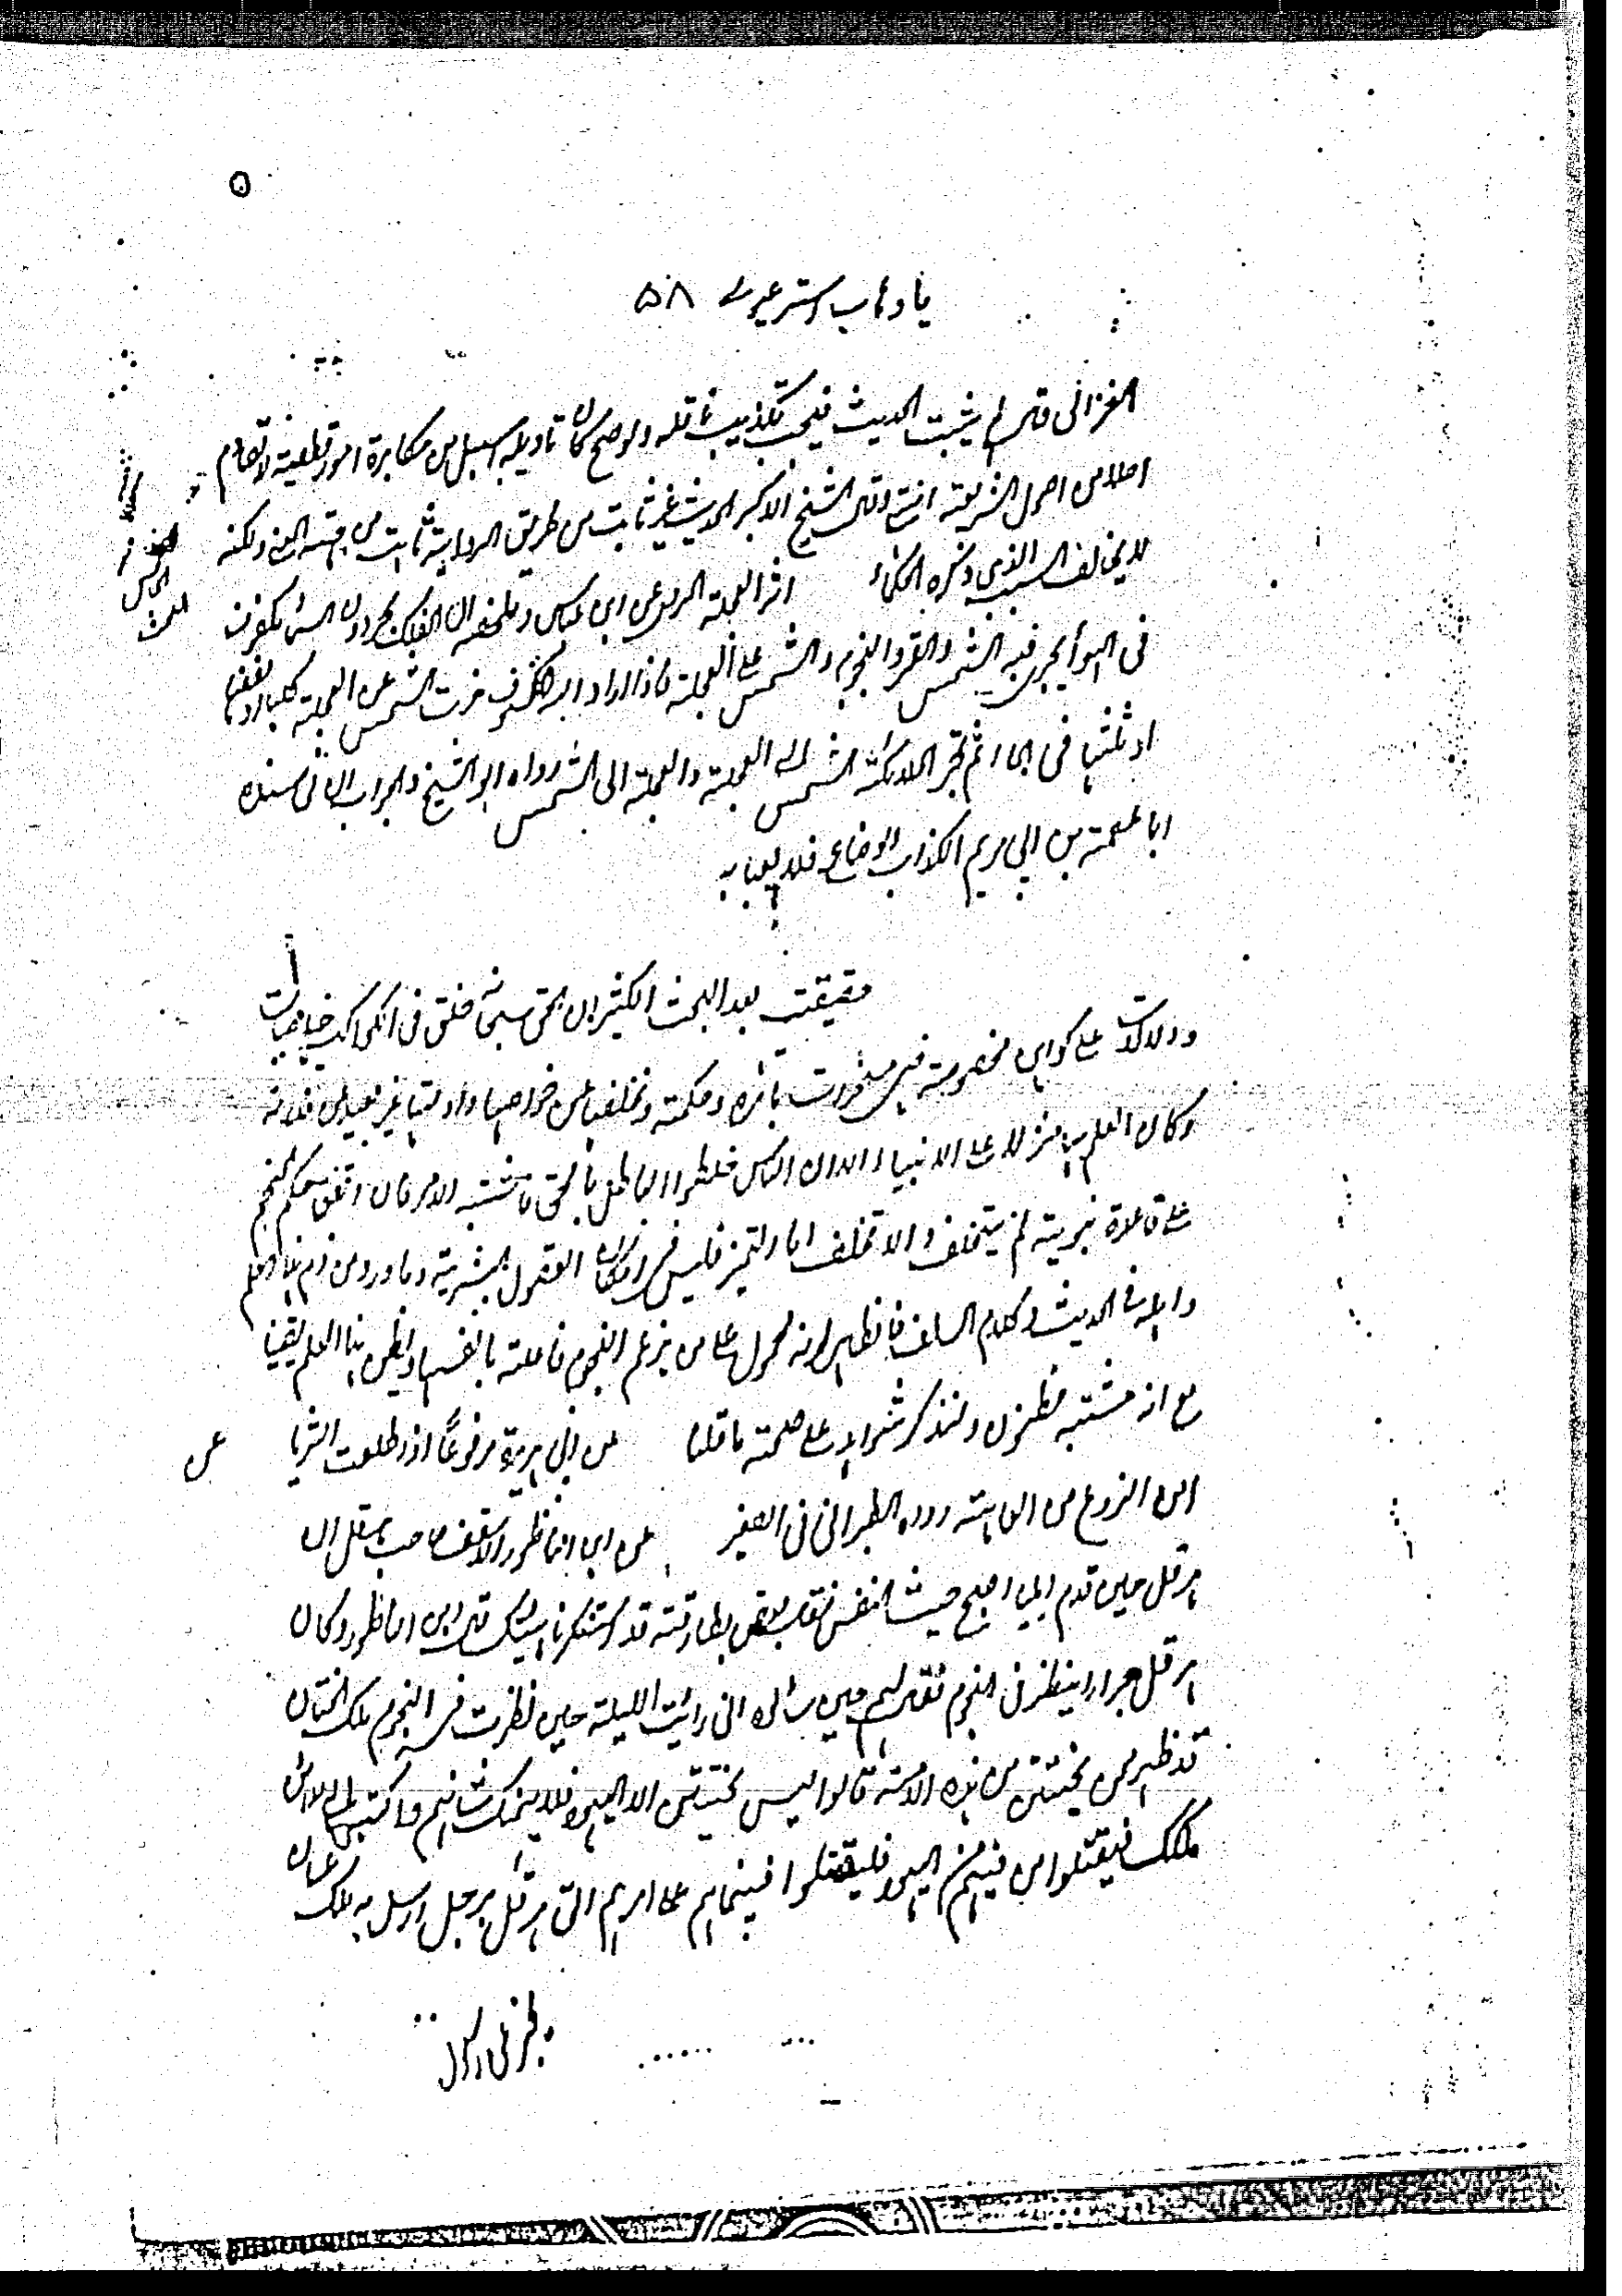 ٥
يا وهاب استر عيوبى ٥٨
الغزالى قال لم يثبت الحديث فيجب تكذيب ناقله ولو صح كان تاويله اسهل من مكابرة امور قطعية لا تصادم
اصلا من اصول الشريعة انتهى وقال الشيخ الاكبر الحديث غير ثابت من طريق الرواية ثابت من جهة ولكنه
لا يخالف السبب الذى ذكره الحكماء اثر العجلة المروى عن ابن عباس وملخصه ان الفلك بحر دون السماء مكفوف
فى الهواء يجرى فيه الشمس والقمر والنجوم والشمس على العجلة فاذا اراد الله الكسوف خرت الشمس عن العجلة كلها او نصفها
او ثلثها فى الماء ثم تجر الملائكة الشمس الى العجلة والعجلة الى الشمس رواه ابو الشيخ والجواب ان فى سنده
ابا عصمة بن ابى مريم الكذاب الوضاع فلا يعبأ به
حقيقت بعد البحث الكثير ان الحق سبحانه خلق فى الكواكب خاصيات
ودلالات على كوائن مخصوصة فهى مسخرات بامره وحكمته وتخلفها عن خواصها وادلتها غير بعيد من قدرته
وكان العلم بها منزلا على الانبياء الا ان الناس خلطوا الباطل بالحق فاشتبه الامر فان اتفق حكم المنجم
على قاعدة نبوية لم يتخلف والا تخلف اما التميز فليس فى امكان العقول البشرية وما ورد من ذم هذا العلم
واهله فى الحديث وكلام السلف فالظاهر انه محمول على من يزعم النجوم فاعلة بانفسها ويظن هذا العلم يقينا
مع انه مشتبه مظنون ولنذكر شواهد على صحة ما قلنا عن ابى هريرة مرفوعًا اذا طلعت الثريا
امن الزرع من العاهة رواه الطبرانى فى الصغير عن ابن الناظور الاسقف صاحب هرقل ان
هرقل حين قدم ايليا اصبح خبيث النفس فقال بعض بطارقته قد استنكرنا هيئتك قال ابن الناظور وكان
هرقل حزاء ينظر فى النجوم فقال لهم حين سألوه انى رأيت الليلة حين نظرت فى النجوم ملك الختان
قد ظهر فمن يختتن من هذه الامة قالوا ليس يختتن الا اليهود فلا يهمنك شأنهم واكتب الى مدائن
ملكك فيقتلوا من فيهم من اليهود فليقتلوا فبينما هم على امرهم اتى هرقل برجل ارسل به ملك غسان
يخبر عن رسول